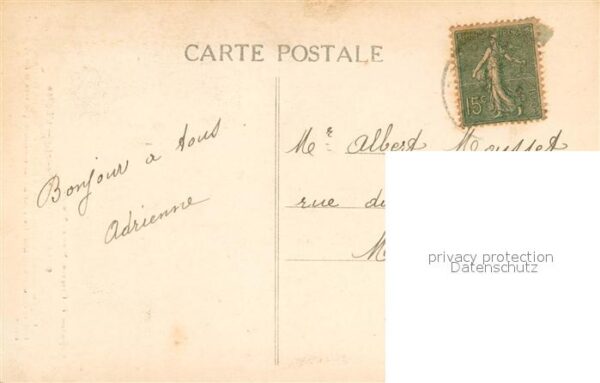 CARTE POSTALE
15c
Bonjour à tous
Adrienne
Mr Albert Mousset
rue du
M
privacy protection
Datenschutz